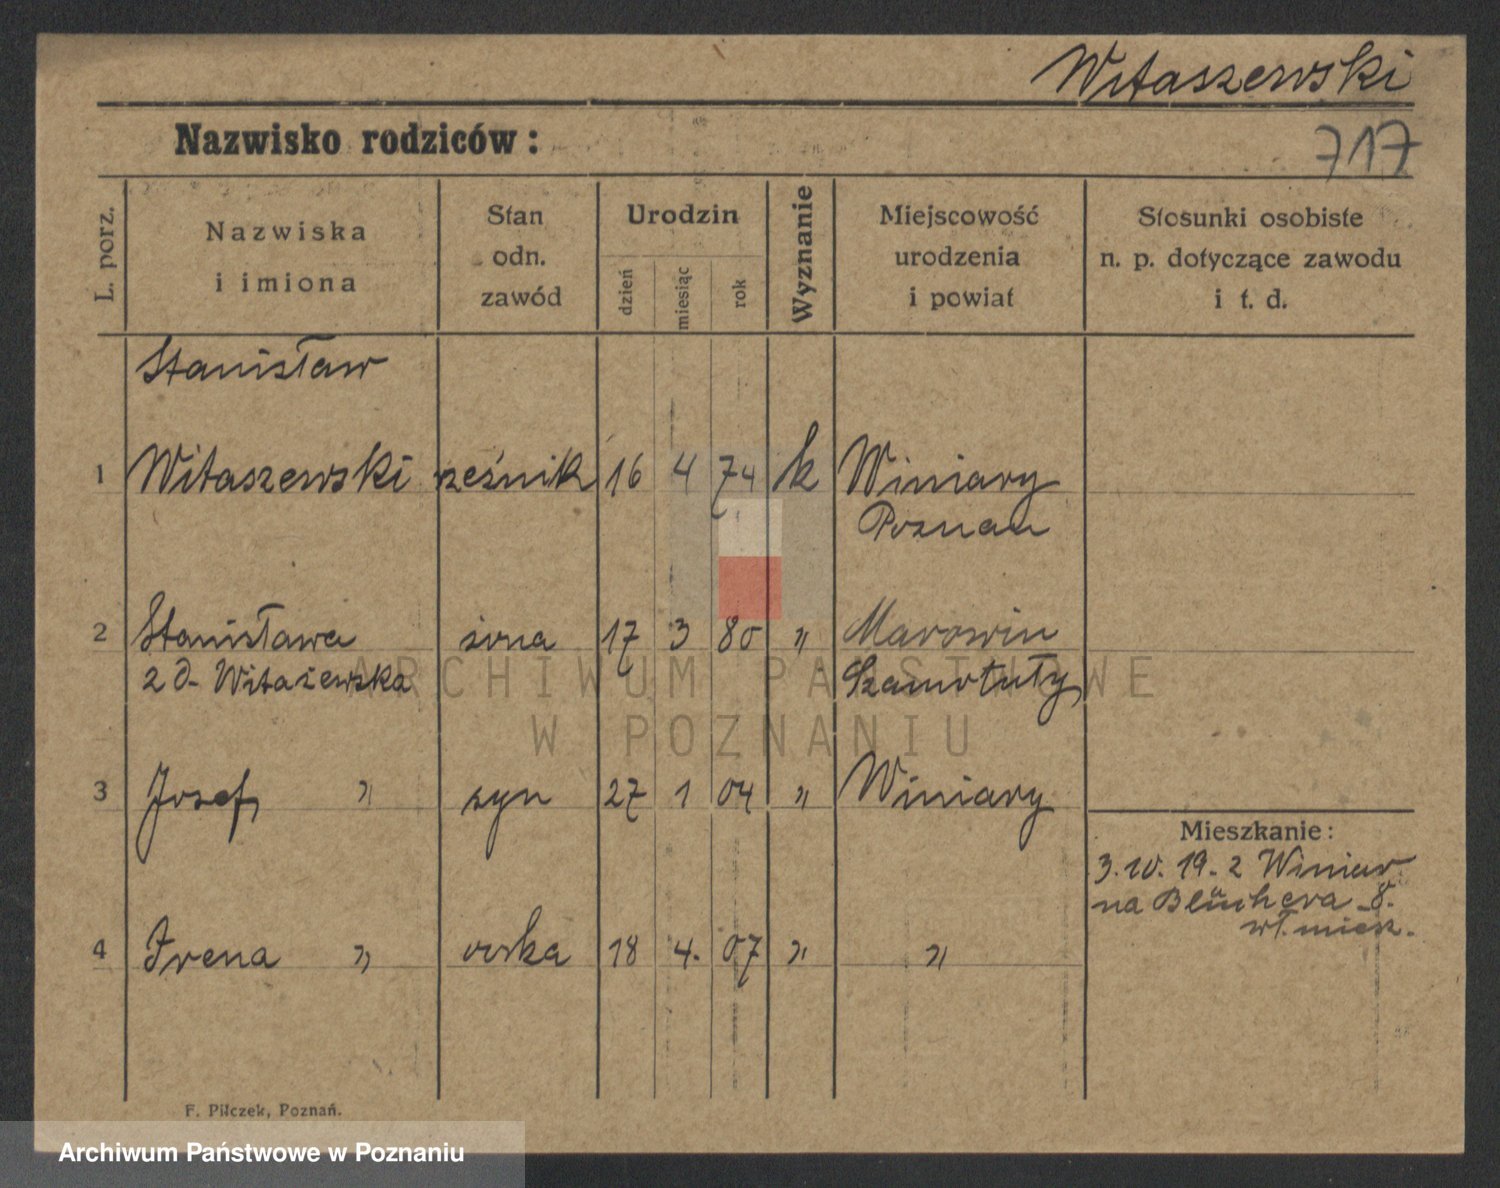 Witaszewski
Nazwisko rodziców:
717
L. porz.
Nazwiska
i imiona
Stan
odn.
zawód
Urodzin
dzień
miesiąc
rok
Wyznanie
Miejscowość
urodzenia
i powiat
Stosunki osobiste
n. p. dotyczące zawodu
i t. d.
Stanisław
1 Witaszewski rzeźnik 16 4 74 k Winiary
Poznan
2 Stanisława żona 17 3 80 " 
2 d. Witaszewska Szamotuły
3 Josef " syn 27 1 04 " Winiary
Mieszkanie:
3.10.19. z Winiar
na Blüchera 8.
4 Irena " corka 18 4. 07 " "
F. Pilczek, Poznań.
ARCHIWUM PAŃSTWOWE
W POZNANIU
Archiwum Państwowe w Poznaniu